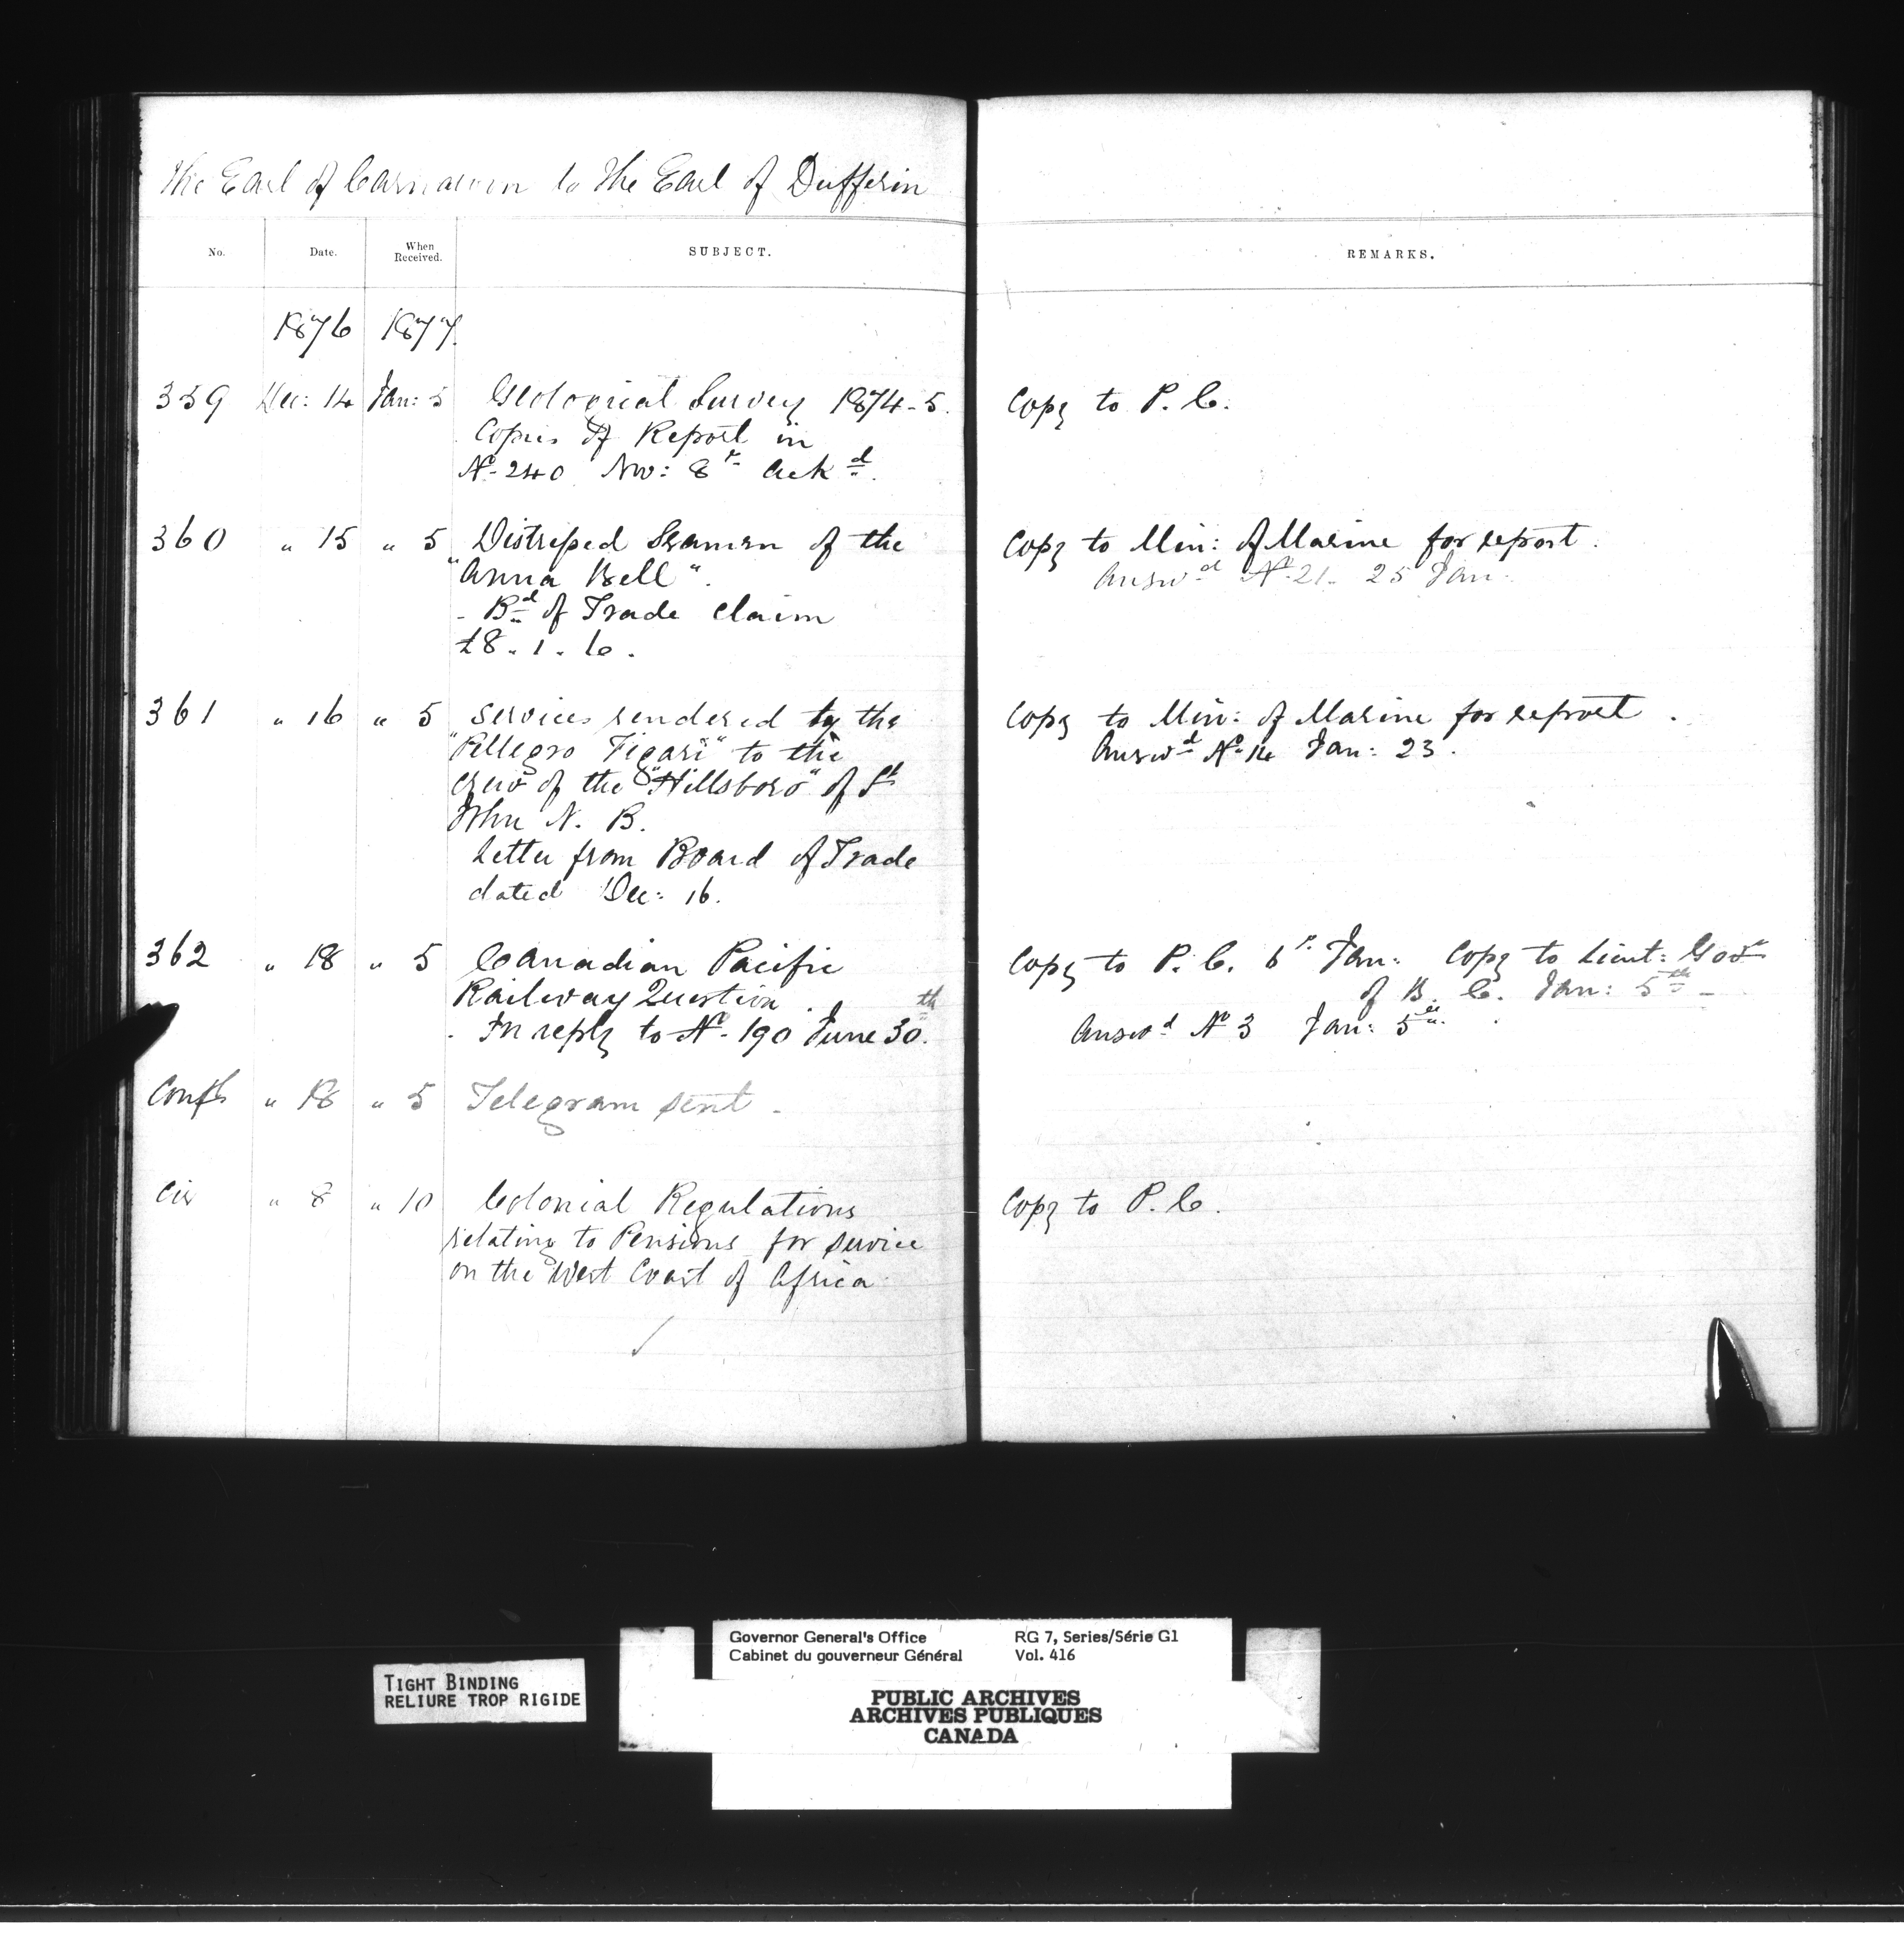 The Earl of Carnarvon to The Earl of Dufferin
No. Date. When Received. SUBJECT. REMARKS.
1876 1877.
359 Dec: 14 Jan: 5 Geological Survey 1874-5. Copy to P. C.
Copies of Report in
No. 240 Nov: 8th Ackd.
360 " 15 " 5 Distressed Seamen of the Copy to Min: of Marine for report.
"Anna Bell". Answd No. 21. 25 Jan.
- Bd of Trade claim
£8. 1. 6.
361 " 16 " 5 Services rendered by the Copy to Min: of Marine for report.
"Pellegro Figari" to the Answd No. 14 Jan: 23.
crew of the "Hillsboro" of St
John N. B.
Letter from Board of Trade
dated Dec: 16.
362 " 18 " 5 Canadian Pacific Copy to P. C. 6th Jan: Copy to Lieut: Govr
Railway Question. of B. C. Jan: 5th -
- In reply to No. 190 June 30th. Answd No 3 Jan: 5th.
Confl " 18 " 5 Telegram sent -
Cir " 8 " 10 Colonial Regulations Copy to P. C.
relating to Pensions for service
on the West Coast of Africa
Governor General's Office RG 7, Series/Série G1
Cabinet du gouverneur Général Vol. 416
TIGHT BINDING
RELIURE TROP RIGIDE
PUBLIC ARCHIVES
ARCHIVES PUBLIQUES
CANADA